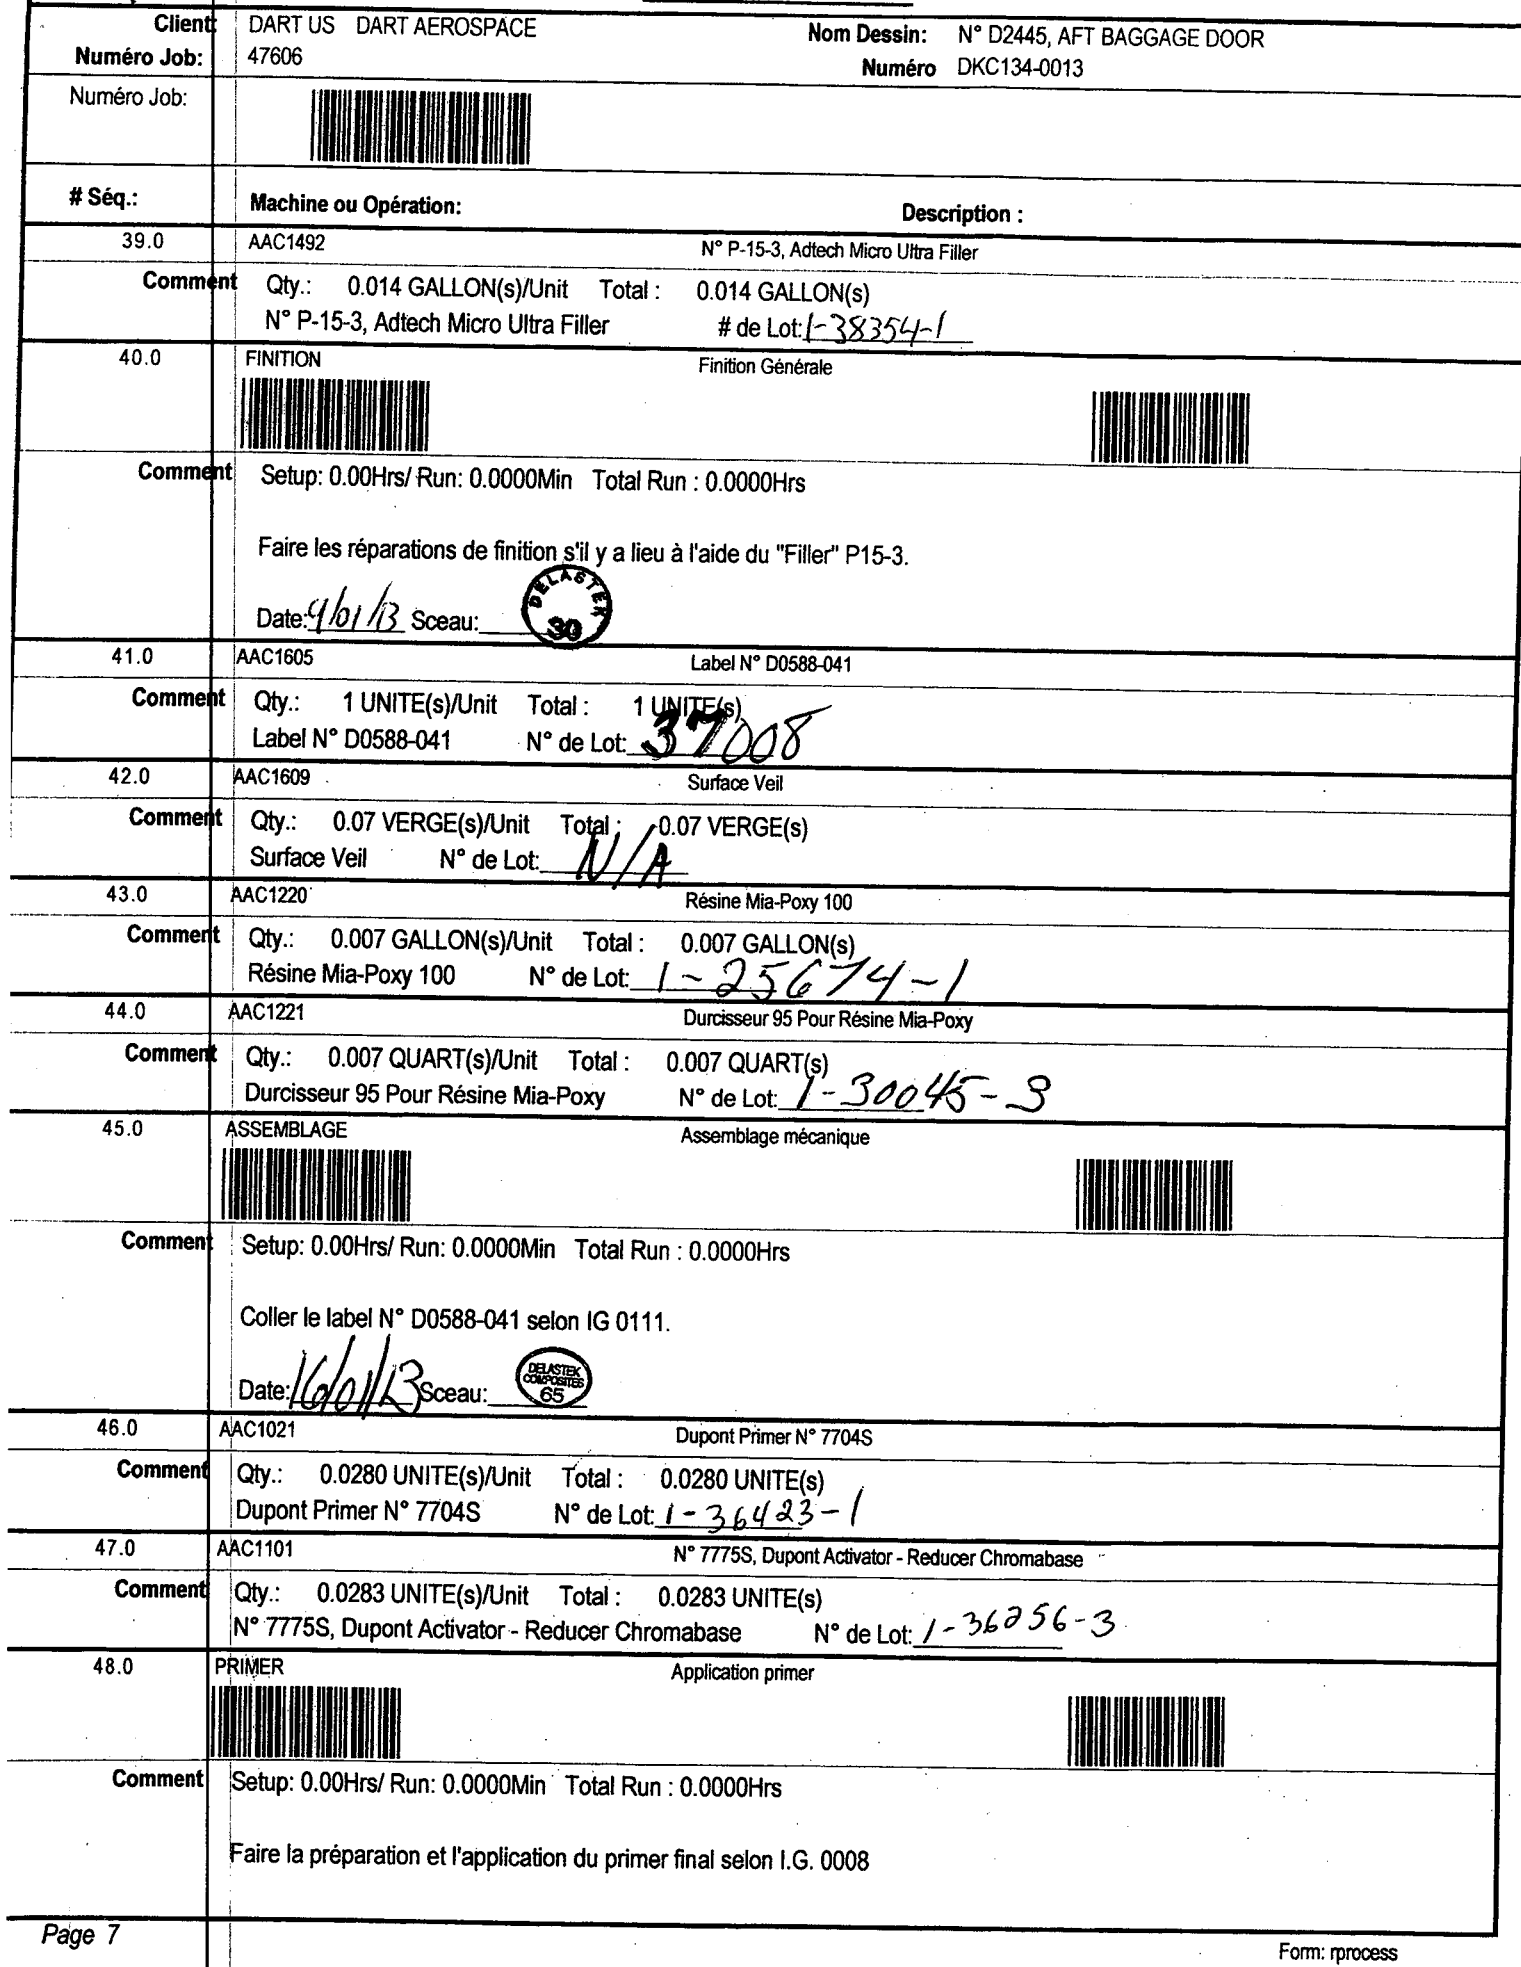 Client: DART US DART AEROSPACE Nom Dessin: N° D2445, AFT BAGGAGE DOOR
Numéro Job: 47606 Numéro DKC134-0013
Numéro Job:
# Séq.: Machine ou Opération: Description :
39.0 AAC1492 N° P-15-3, Adtech Micro Ultra Filler
Comment Qty.: 0.014 GALLON(s)/Unit Total : 0.014 GALLON(s)
N° P-15-3, Adtech Micro Ultra Filler # de Lot: 1-38354-1
40.0 FINITION Finition Générale
Comment Setup: 0.00Hrs/ Run: 0.0000Min Total Run : 0.0000Hrs
Faire les réparations de finition s'il y a lieu à l'aide du "Filler" P15-3.
Date: 9/01/13 Sceau: DELASTEK 30
41.0 AAC1605 Label N° D0588-041
Comment Qty.: 1 UNITE(s)/Unit Total : 1 UNITE(s)
Label N° D0588-041 N° de Lot: 37008
42.0 AAC1609 Surface Veil
Comment Qty.: 0.07 VERGE(s)/Unit Total : 0.07 VERGE(s)
Surface Veil N° de Lot: N/A
43.0 AAC1220 Résine Mia-Poxy 100
Comment Qty.: 0.007 GALLON(s)/Unit Total : 0.007 GALLON(s)
Résine Mia-Poxy 100 N° de Lot: 1-25674-1
44.0 AAC1221 Durcisseur 95 Pour Résine Mia-Poxy
Comment Qty.: 0.007 QUART(s)/Unit Total : 0.007 QUART(s)
Durcisseur 95 Pour Résine Mia-Poxy N° de Lot: 1-30045-3
45.0 ASSEMBLAGE Assemblage mécanique
Comment Setup: 0.00Hrs/ Run: 0.0000Min Total Run : 0.0000Hrs
Coller le label N° D0588-041 selon IG 0111.
Date: 16/01/13 Sceau: DELASTEK COMPOSITES 65
46.0 AAC1021 Dupont Primer N° 7704S
Comment Qty.: 0.0280 UNITE(s)/Unit Total : 0.0280 UNITE(s)
Dupont Primer N° 7704S N° de Lot: 1-36423-1
47.0 AAC1101 N° 7775S, Dupont Activator - Reducer Chromabase
Comment Qty.: 0.0283 UNITE(s)/Unit Total : 0.0283 UNITE(s)
N° 7775S, Dupont Activator - Reducer Chromabase N° de Lot: 1-36256-3
48.0 PRIMER Application primer
Comment Setup: 0.00Hrs/ Run: 0.0000Min Total Run : 0.0000Hrs
Faire la préparation et l'application du primer final selon I.G. 0008
Page 7
Form: rprocess